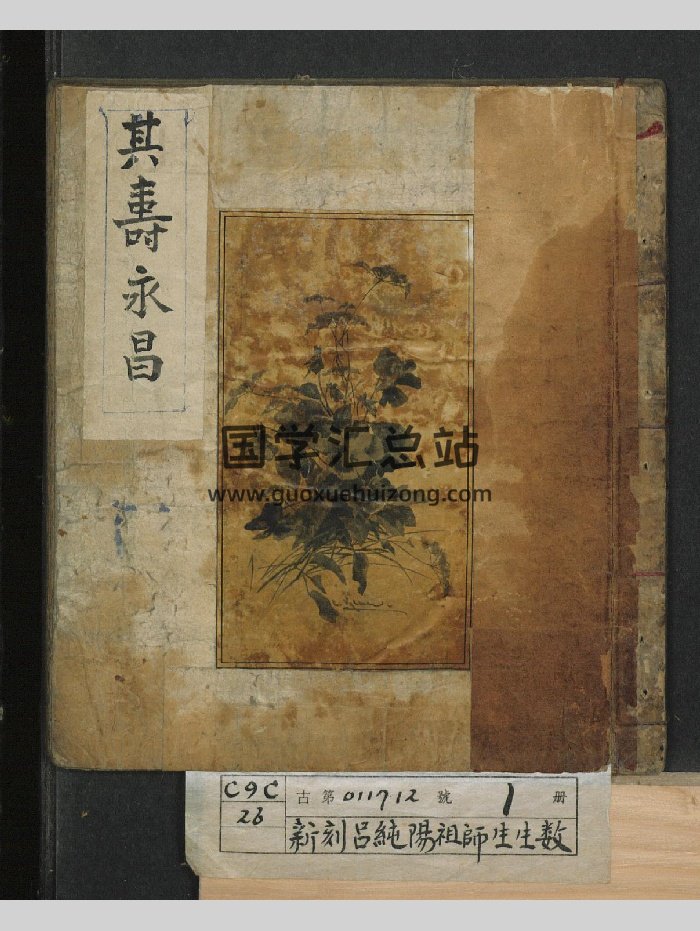 其壽永昌
国学汇总站
www.guoxuehuizong.com
C9C
26
古第011712號 1 册
新刻吕純陽祖師生生数